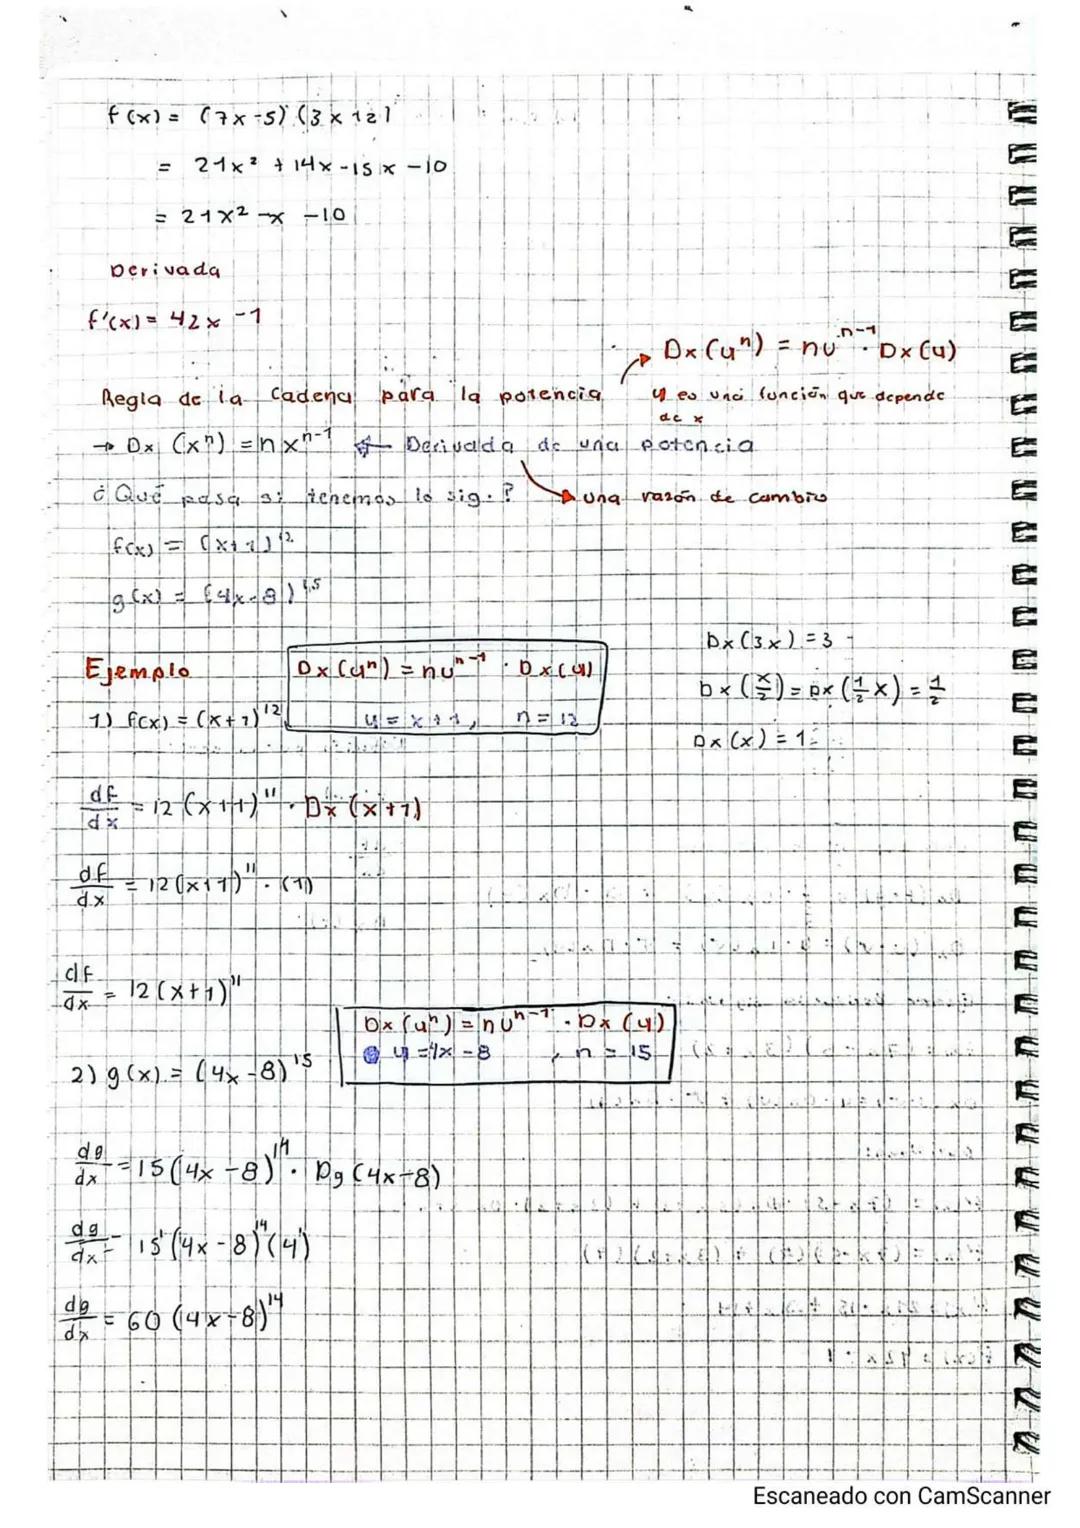 f(x) = (7x-5) (3x+2)
= 21x² + 14x - 15x - 10
= 21x² - x - 10
Derivada
f'(x) = 42x - 1
Dx(uⁿ) = nuⁿ⁻¹ · Dx(u)
Regla de la cadena para la potencia
u es una función que depende de x
→ Dx (xⁿ) = nxⁿ⁻¹ ← Derivada de una potencia
¿Qué pasa si tenemos lo sig.?
una razón de cambio
f(x) = (x+1)¹²
g(x) = (4x-8)¹⁵
Dx(3x) = 3
Ejemplo
Dx(uⁿ) = nuⁿ⁻¹ · Dx(u)
Dx(x/2) = Dx(1/2 x) = 1/2
1) f(x) = (x+1)¹²
u = x+1, n = 12
Dx(x) = 1
df/dx = 12(x+1)¹¹ · Dx(x+1)
df/dx = 12(x+1)¹¹ · (1)
df/dx = 12(x+1)¹¹
Dx(uⁿ) = nuⁿ⁻¹ · Dx(u)
u = 4x - 8, n = 15
2) g(x) = (4x-8)¹⁵
dg/dx = 15(4x-8)¹⁴ · Dg(4x-8)
dg/dx = 15(4x-8)¹⁴(4)
dg/dx = 60(4x-8)¹⁴
Escaneado con CamScanner